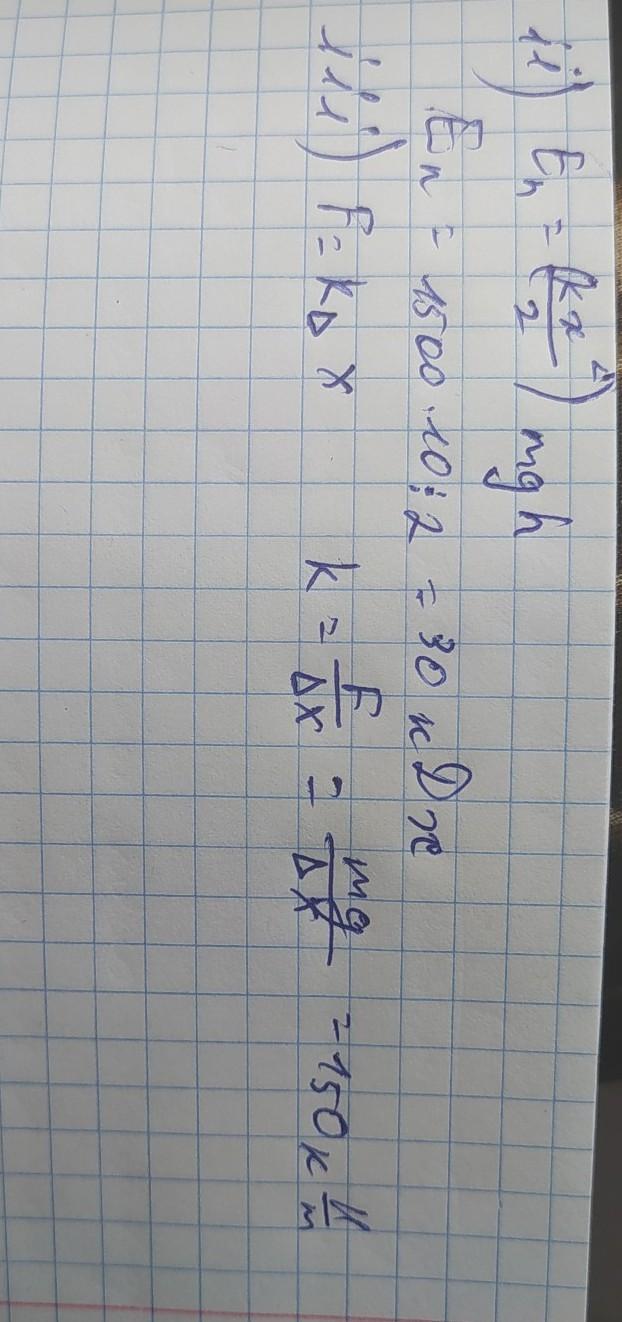 ii) Eп = (kx²/2) mgh
Eп = 1500 · 10 : 2 = 30 кДж
iii) F = kΔx   k = F/Δx = mg/Δx = 150 к Н/m